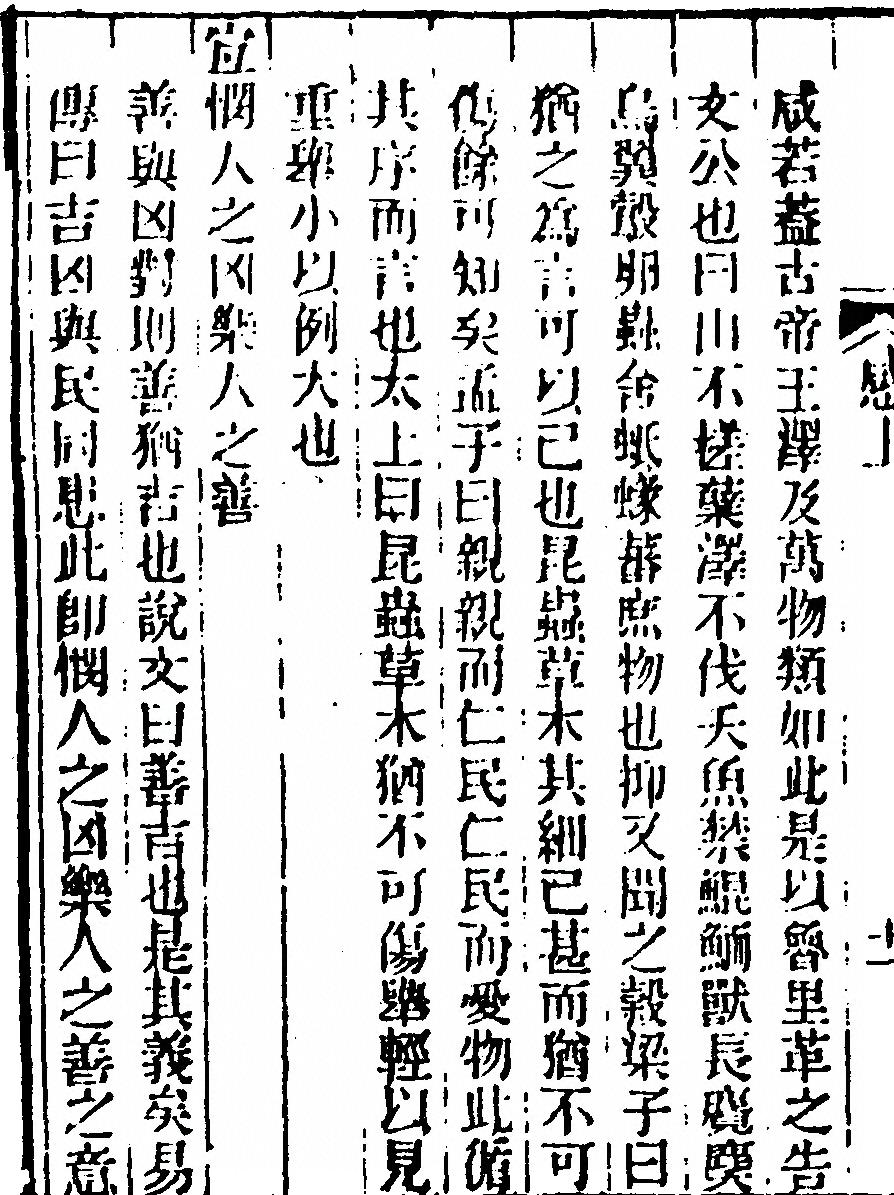 感上
十一
咸若蓋古帝王澤及萬物類如此是以魯里革之告
文公也曰山不槎蘖澤不伐夭魚禁鯤鮞獸長麑䴠
鳥翼鷇卵蟲舍蚳蝝蕃庶物也抑又聞之穀梁子曰
猶之為言可以已也昆蟲草木其細已甚而猶不可
傷餘可知矣孟子曰親親而仁民仁民而愛物此循
其序而言也太上曰昆蟲草木猶不可傷舉輕以見
重舉小以例大也
宜憫人之凶樂人之善
善與凶對則善猶吉也說文曰善吉也是其義矣易
傳曰吉凶與民同患此即憫人之凶樂人之善之意